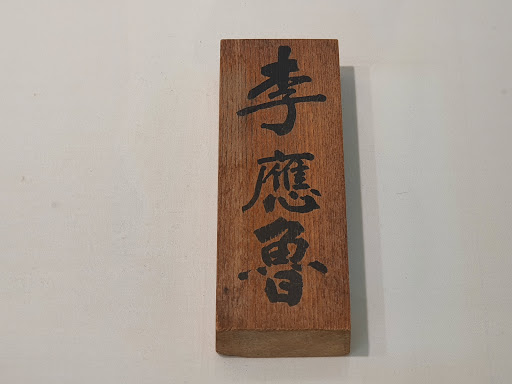 李應魯